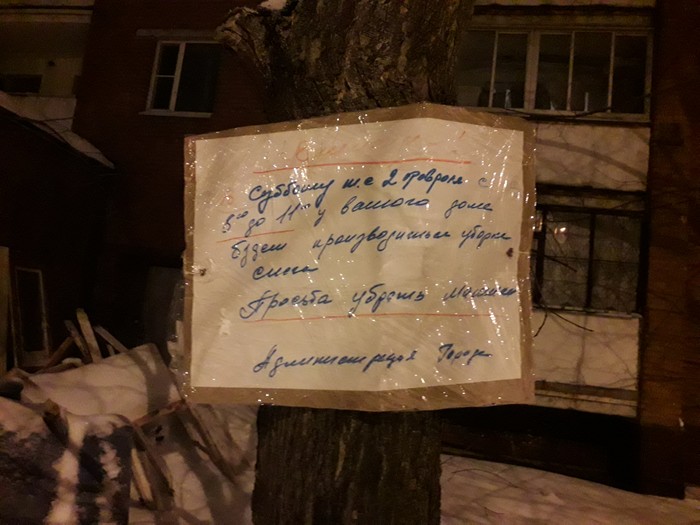 Субботу т.е 2 февраля с
8⁰⁰ до 11⁰⁰ у вашего дома
будет производиться уборка
снега
Просьба убрать машины
Администрация Города